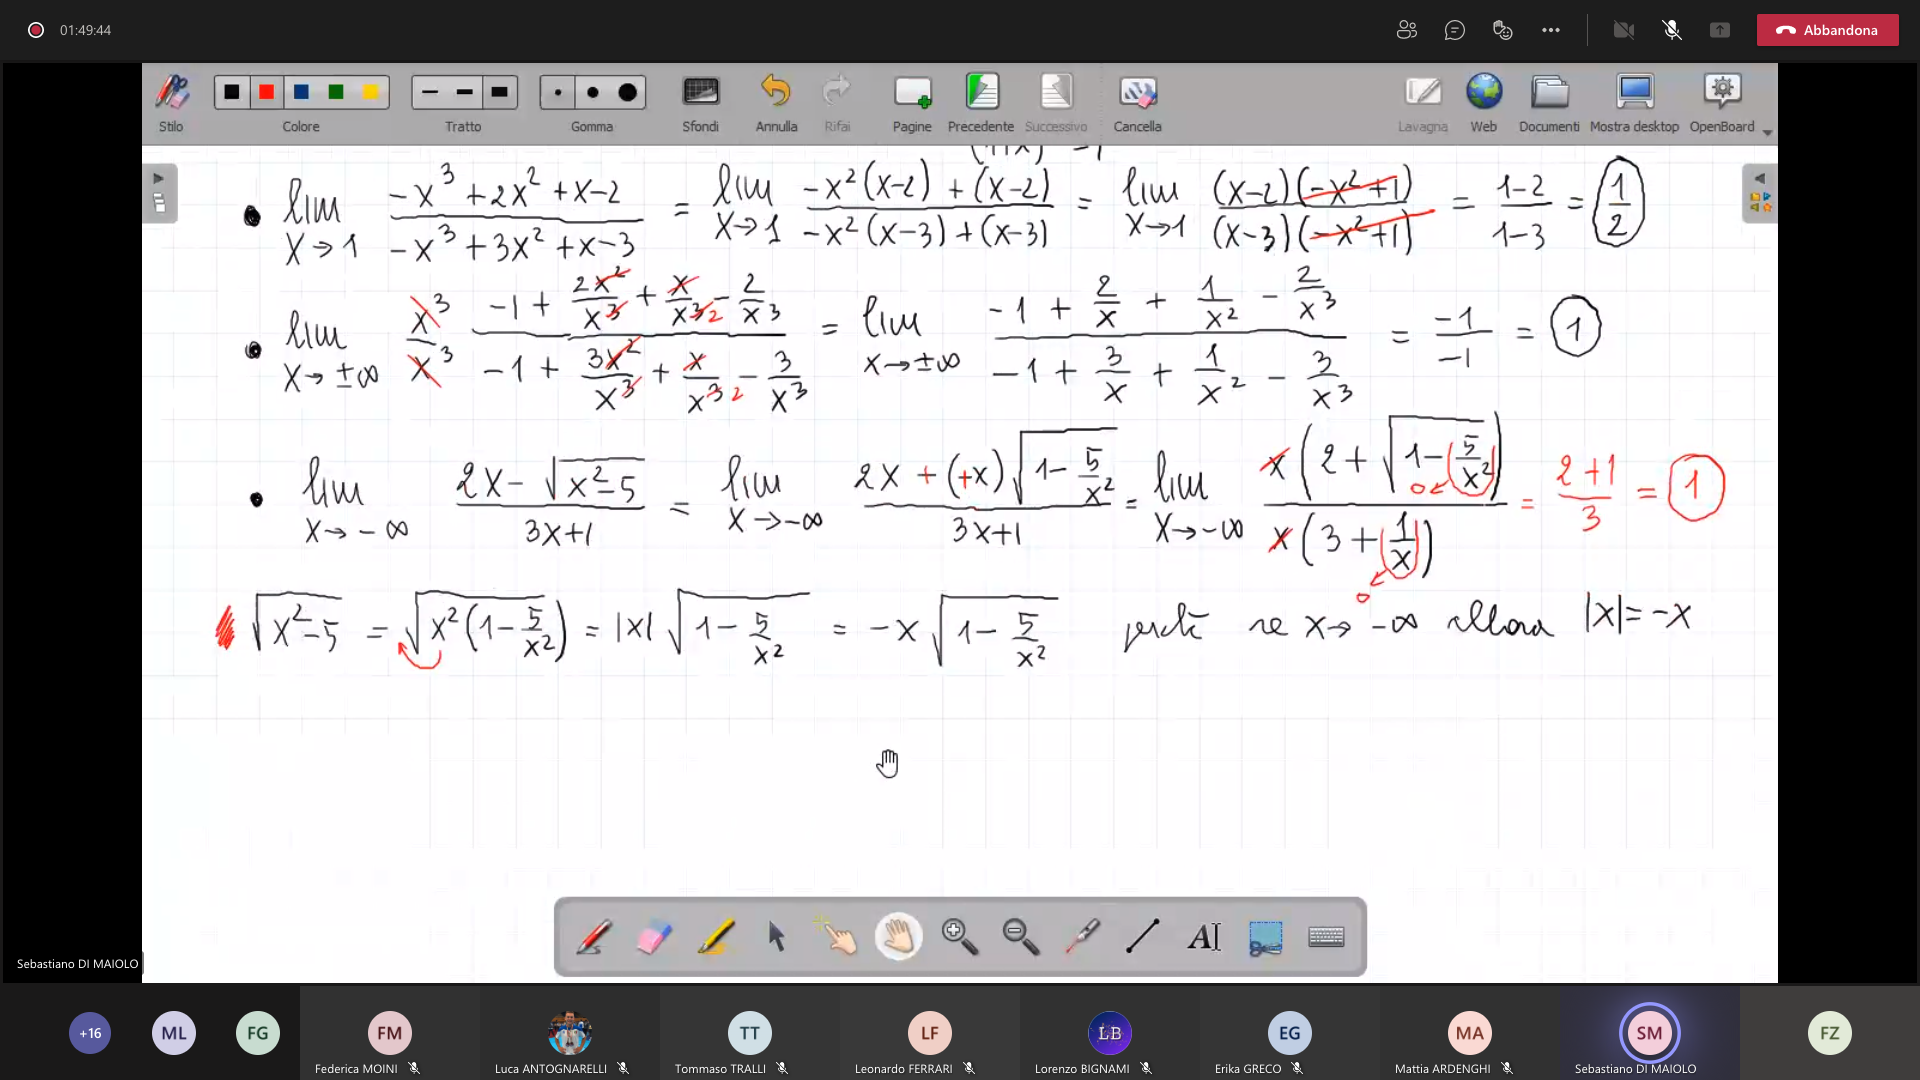 01:49:44
Abbandona
Stilo Colore Tratto Gomma Sfondi Annulla Rifai Pagine Precedente Successivo Cancella Lavagna Web Documenti Mostra desktop OpenBoard
• lim x→1 (-x³+2x²+x-2)/(-x³+3x²+x-3) = lim x→1 (-x²(x-2)+(x-2))/(-x²(x-3)+(x-3)) = lim x→1 ((x-2)(-x²+1))/((x-3)(-x²+1)) = (1-2)/(1-3) = 1/2
• lim x→±∞ x³/x³ (-1+2x²/x³+x/x³-2/x³)/(-1+3x²/x³+x/x³-3/x³) = lim x→±∞ (-1+2/x+1/x²-2/x³)/(-1+3/x+1/x²-3/x³) = -1/-1 = 1
• lim x→-∞ (2x-√(x²-5))/(3x+1) = lim x→-∞ (2x+(+x)√(1-5/x²))/(3x+1) = lim x→-∞ (x(2+√(1-5/x²)))/(x(3+1/x)) = (2+1)/3 = 1
0
0
√(x²-5) = √(x²(1-5/x²)) = |x|√(1-5/x²) = -x√(1-5/x²) perché se x→-∞ allora |x|=-x
AI
Sebastiano DI MAIOLO
+16 ML FG FM TT LF LB EG MA SM FZ
Federica MOINI Luca ANTOGNARELLI Tommaso TRALLI Leonardo FERRARI Lorenzo BIGNAMI Erika GRECO Mattia ARDENGHI Sebastiano DI MAIOLO